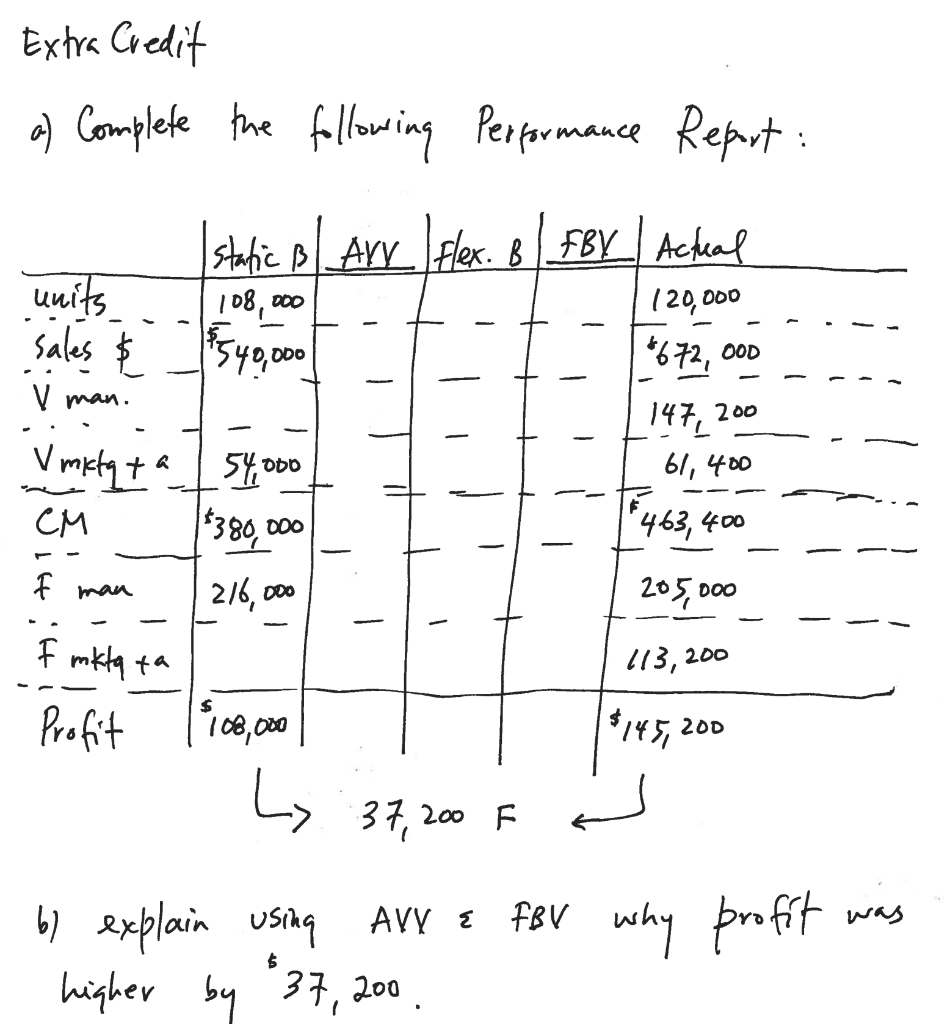 Extra Credit
a) Complete the following Performance Report:
Static B AVV Flex. B FBV Actual
units 108,000 120,000
Sales $ $540,000 $672,000
V man. 147,200
V mktg + a 54,000 61,400
CM $380,000 $463,400
F man 216,000 205,000
F mktg + a 113,200
Profit $108,000 $145,200
37,200 F
b) explain using AVV & FBV why profit was
higher by $37,200.